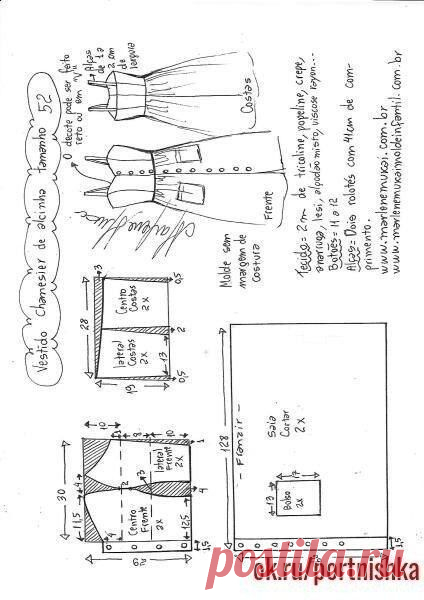 Vestido Chamesier de alcinha tamanho 52
O decote pode ser feito
reto ou em "V"
Alças
de 1 a
2 cm
de
largura
Costas
Frente
Molde sem
margem de
costura
Tecido = 2m de tricoline, popeline, crepe,
anarruga, lesi, algodão misto, viscose rayon...
Botões = 11 a 12
Alças = Dois rolotés com 41cm de com-
primento.
www.marlenemukai.com.br
www.marlenemukaimoldeinfantil.com.br
28
3
Centro
Costas
2x
lateral
Costas
2x
19
13
0,5
2
0,5
30
10
11,5
4
4
8
10
3
2
1
Centro
Frente
2x
lateral
Frente
2x
12,5
4
128
- Franzir -
Saia
Cortar
2x
13
17
Bolso
2x
1,5
1,5
postila.ru
ok.ru/portnishka